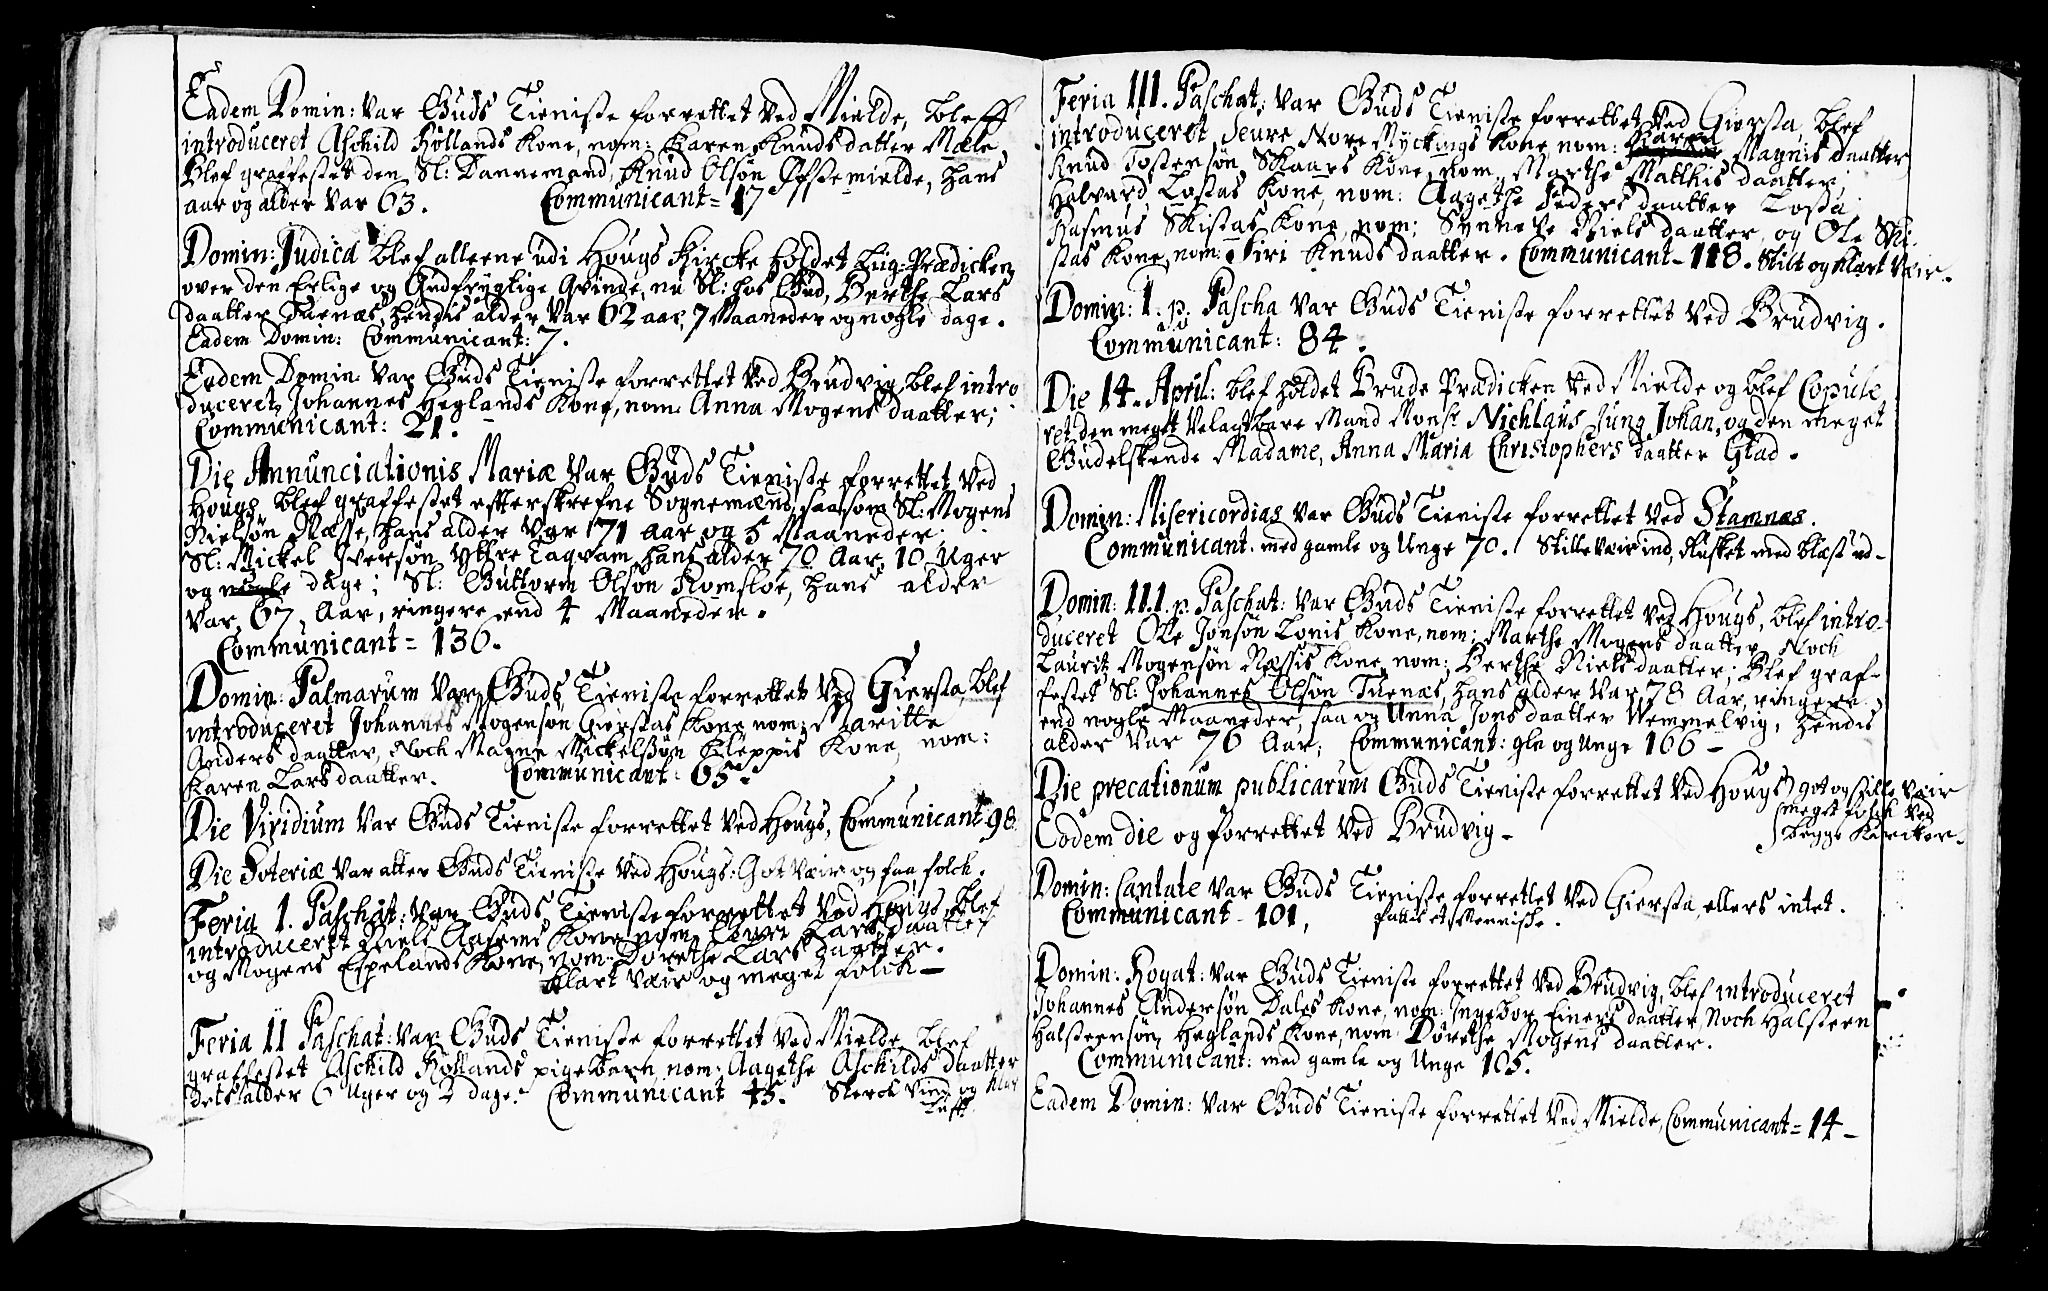 Eadem Domin: Var Guds Tieniste forrettet Ved Mielde, bleff
introduceret Aschild Höllands Kone, nom: Karen Knudsdatter Mæle,
Blef graffestet den Sl: Dannemand, Knud Olsön Öfstemielde, hans
aar og alder Var 63. Communicant = 17
Domin: Judica blef alleene udi Hougs Kircke holdet Liig-Prædicken
over den Erlige og Gudfrygtige Qvinde, nu Sl: hos Gud, Berthe Lars
daatter Tuenæs, hendis alder Var 62 aar, 7 Maaneder og nogle dage.
Eadem Domin: Communicant: 7.
Eadem Domin: Var Guds Tieniste forrettet Ved Brudvig, blef intro
duceret, Johannes Heglands Kone, nom: Anna Mogens daatter;
Communicant: 21.
Die Annunciationis Mariæ Var Guds Tieniste forrettet Ved
Hougs, blef graffestet efterskrefne Sognemænd, saasom Sl: Mogens
Nielsön Næsse, hans alder Var 71 aar og 5 Maaneder;
Sl: Mickel Iversön Yttre Taqvam, hans alder 70 Aar, 10 Uger
og nogle dage; Sl: Guttorm Olsön Romsloe, hans alder
Var 67 Aar, ringere end 4 Maaneder.
Communicant = 136.
Domin: Palmarum Var Guds Tieniste forrettet Ved Giersta, blef
introduceret Johannes Mogensön Gierstas Kone nom: Maritte
Anders daatter, Noch Magne Mickelsön Kleppis Kone, nom:
Karen Lars daatter. Communicant: 65.
Die Viridium Var Guds Tieniste forrettet Ved Hougs, Communicant 98
Die Soteriæ Var atter Guds Tieniste Ved Hougs: Got Væir og faa folck.
Feria 1. Paschat: Var Guds Tieniste forrettet Ved Hougs, Blef
introduceret Niels Aasems Kone nom: Lars daatter
og Mogens Espelands Kone, nom: Dorethe Lars daatter.
Klart Væir og meget folck -
Feria II Paschat: Var Guds Tieniste forrettet Ved Mielde, blef
graffestet Aschild Höllands pigebarn, nom: Aagethe Aschilds daatter
Dets alder 6 Uger og 2 dage. Communicant 45. Sterck Vind og Klar
Luft.
Feria III. Paschat: Var Guds Tieniste forrettet Ved Giersta, blef
introduceret, Seure Nore Myckings Kone nom: Karen Magnis daatter,
Knud Tostensön Skaars Kone nom: Marthe Matthis daatter;
Halvard Lostas Kone, nom: Aagethe Peders daatter Losta
Rasmus Skistas Kone, nom: Synneve Niels daatter, og Ole Ski-
stas Kone, nom: Siri Knuds daatter. Communicant - 118. Stilt og klart Væir.
Domin: 1. p. Pascha Var Guds Tieniste forrettet Ved Brudvig.
Communicant: 84.
Die 14. April: blef holdet Brude Prædicken Ved Mielde og blef Copule
ret den meget Velagtbare Mand Monsr Nichlaus Jung Johan, og den meget
Gudelskende Madame, Anna Maria Christophers daatter Glad.
Domin: Misericordias Var Guds Tieniste forrettet Ved Stamnæs.
Communicant. med gamle og Unge 70. Stille Væir ind, Rusket med blæst ud-
Domin: III. p. Paschat: Var Guds Tieniste forrettet Ved Hougs, blef intro-
duceret Ole Jonsön Lonis Kone, nom: Marthe Mogens daatter, Noch
Lauritz Mogensön Næssis Kone, nom: Berthe Niels daatter; Blef graf-
festet Sl: Johannes Olsön Tuenæs, hans alder Var 78 Aar, ringere
end nogle Maaneder, saa og Anna Jons daatter Vemmelvig, hendis
alder Var 76 Aar; Communicant: gle og Unge 166 -
Die precationum publicarum Guds Tieniste forrettet Ved Hougs, got og stille Væir
meget folck Ved
begge Kircker.
Eodem die og forrettet Ved Brudvig -
Domin: Cantate Var Guds Tieniste forrettet Ved Giersta, ellers intet.
Communicant - 101, Menniske.
Domin: Rogat: Var Guds Tieniste forrettet Ved Brudvig, blef introduceret
Johannes Andersön Dales Kone, nom: Ingebor Einers daatter, Noch Halsteen
Halsteensön Heglands Kone, nom: Dorethe Mogens daatter.
Communicant: med gamle og Unge 105.
Eadem Domin: Var Guds Tieniste forrettet Ved Mielde, Communicant = 14 -